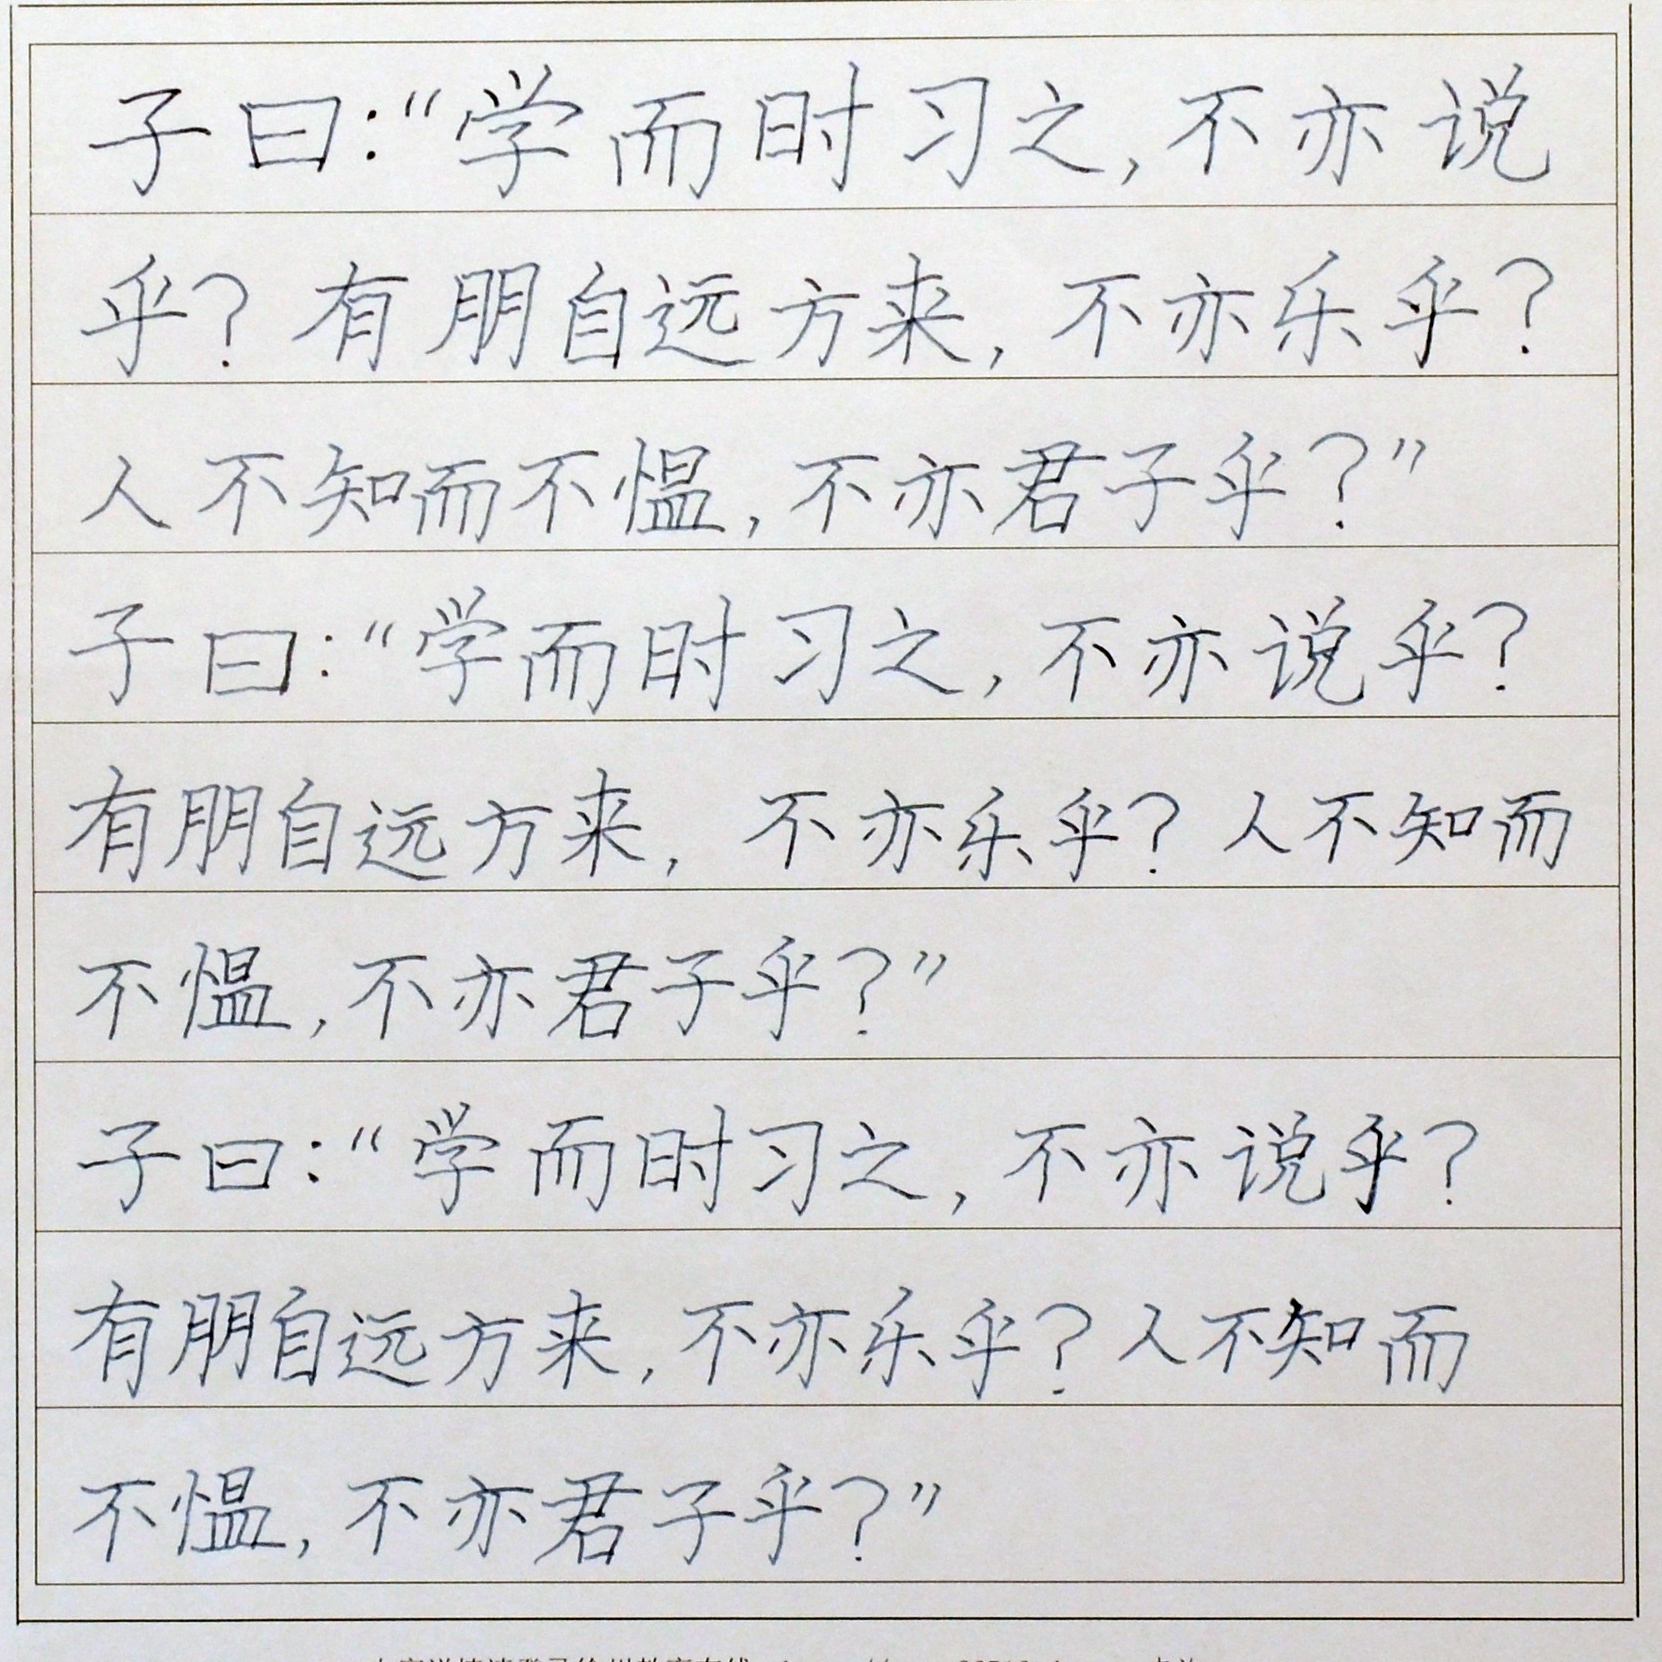 子曰：“学而时习之，不亦说
乎？有朋自远方来，不亦乐乎？
人不知而不愠，不亦君子乎？”
子曰：“学而时习之，不亦说乎？
有朋自远方来，不亦乐乎？人不知而
不愠，不亦君子乎？”
子曰：“学而时习之，不亦说乎？
有朋自远方来，不亦乐乎？人不知而
不愠，不亦君子乎？”